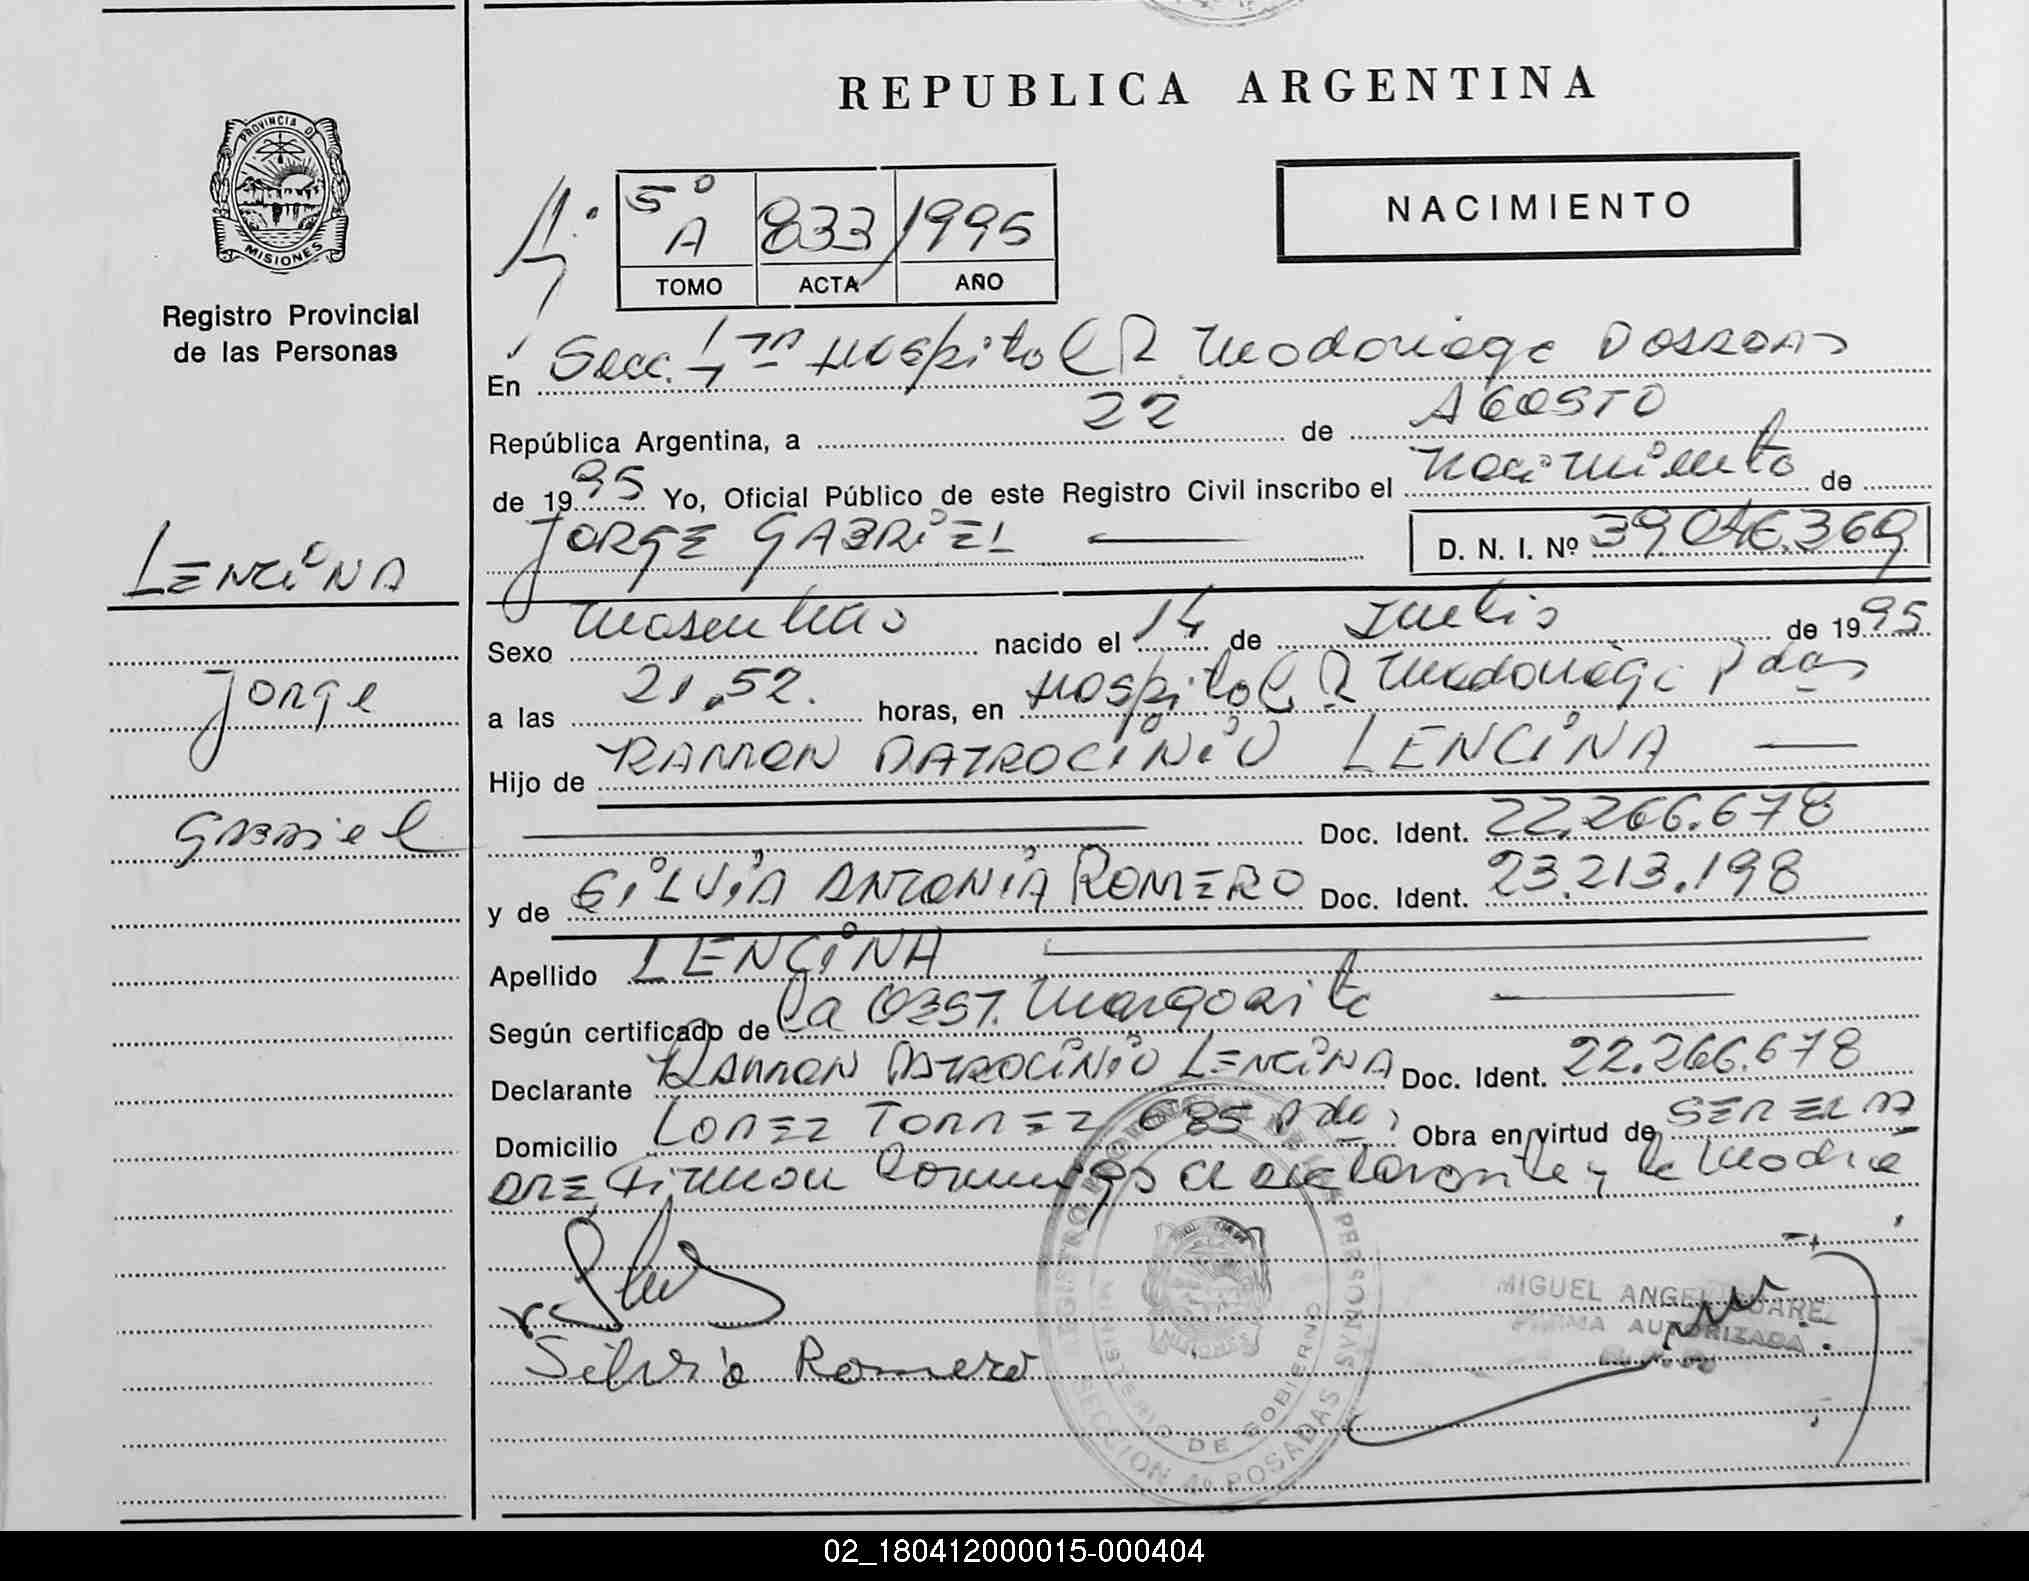 REPUBLICA ARGENTINA
PROVINCIA DE
MISIONES
Registro Provincial
de las Personas
5º A 833 1995
TOMO ACTA AÑO
NACIMIENTO
En Secc. Hospital R. Madariaga Posadas
República Argentina, a 22 de AGOSTO
de 1995 Yo, Oficial Público de este Registro Civil inscribo el Nacimiento de
JORGE GABRIEL D. N. I. Nº 39046.369
LENCINA
Jorge
Gabriel
Sexo Masculino nacido el 14 de Julio de 1995
a las 21,52. horas, en Hospital R Madariaga Pdas
Hijo de RAMON PATROCINIO LENCINA
Doc. Ident. 22.266.678
y de SILVIA ANTONIA ROMERO Doc. Ident. 23.213.198
Apellido LENCINA
Según certificado de la OBST. Margarita
Declarante RAMON PATROCINIO LENCINA Doc. Ident. 22.266.678
Domicilio LOPEZ TORREZ 685 Pdas Obra en virtud de SER EL PA
DRE Firman Conmigo el declarante y la Madre
Silvia Romero
REGISTRO PROVINCIAL DE LAS PERSONAS
MINISTERIO DE GOBIERNO
SECCION 4º POSADAS
MIGUEL ANGEL SUAREZ
FIRMA AUTORIZADA
02_180412000015-000404